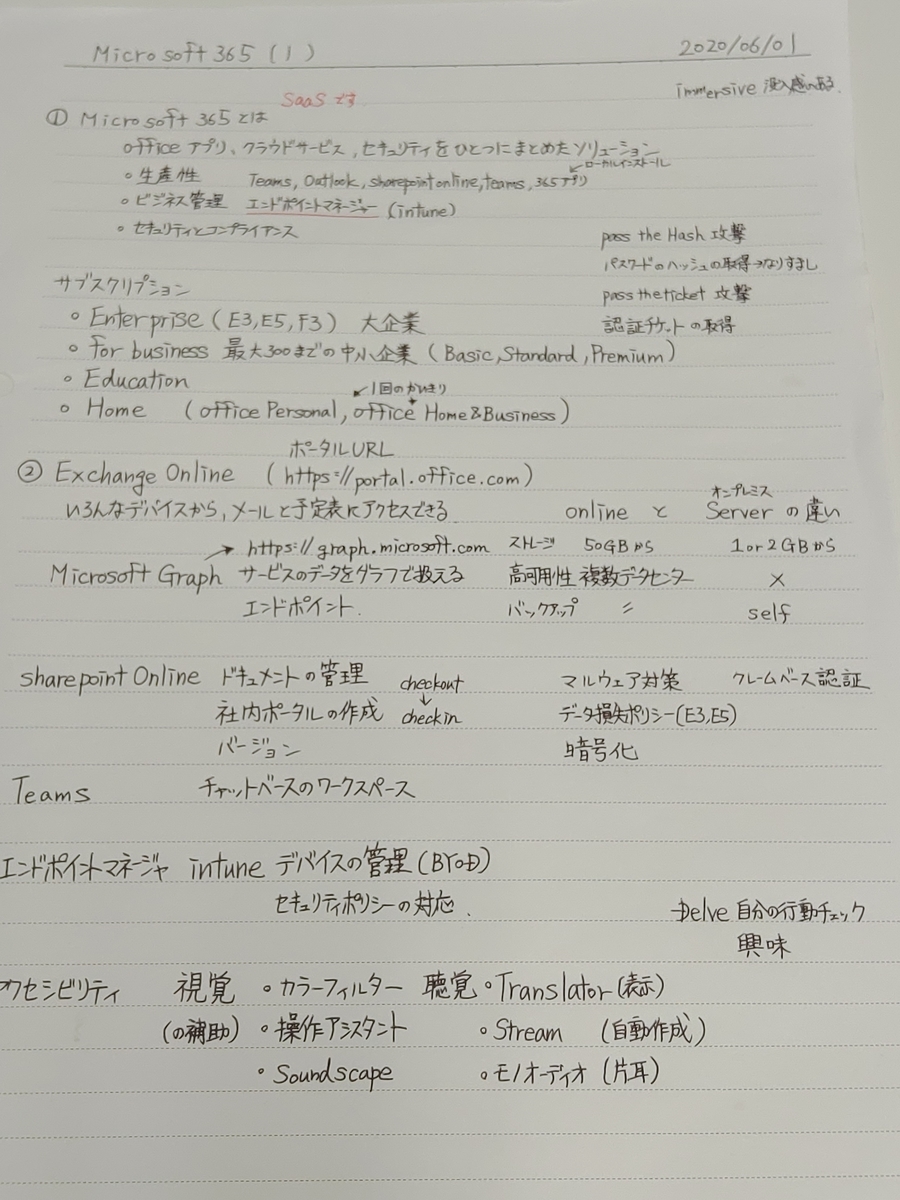 Microsoft 365 (1) 2020/06/01
immersive 没入感へある.
SaaS です
① Microsoft 365 とは
office アプリ、クラウドサービス, セキュリティをひとつにまとめたソリューション
↙ローカルインストール
・生産性 Teams, Outlook, sharepoint online, teams, 365アプリ
・ビジネス管理 エンドポイントマネージャー (intune)
・セキュリティとコンプライアンス
pass the Hash 攻撃
パスワードのハッシュの取得→なりすまし
サブスクリプション
pass the ticket 攻撃
・Enterprise (E3, E5, F3) 大企業
認証チケットの取得
・for business 最大300までの中小企業 (Basic, Standard, Premium)
・Education
↙1回のかいきり
・Home (office Personal, office Home & Business)
ポータルURL
② Exchange Online (https://portal.office.com)
オンプレミス
いろんなデバイスから, メールと予定表にアクセスできる online と Server の違い
→ https://graph.microsoft.com ストレージ 50GBから 1or2GBから
Microsoft Graph サービスのデータをグラフで扱える 高可用性 複数データセンター ×
エンドポイント. バックアップ 〃 self
sharepoint Online ドキュメントの管理 checkout マルウェア対策 クレームベース認証
↓
社内ポータルの作成 checkin データ損失ポリシー(E3,E5)
バージョン 暗号化
Teams チャットベースのワークスペース
エンドポイントマネージャ intune デバイスの管理 (BYOD)
セキュリティポリシーの対応.
Delve 自分の行動チェック
興味
アクセシビリティ 視覚 ・カラーフィルター 聴覚 ・Translator (表示)
(の補助) ・操作アシスタント ・Stream (自動作成)
・Soundscape ・モノオーディオ (片耳)